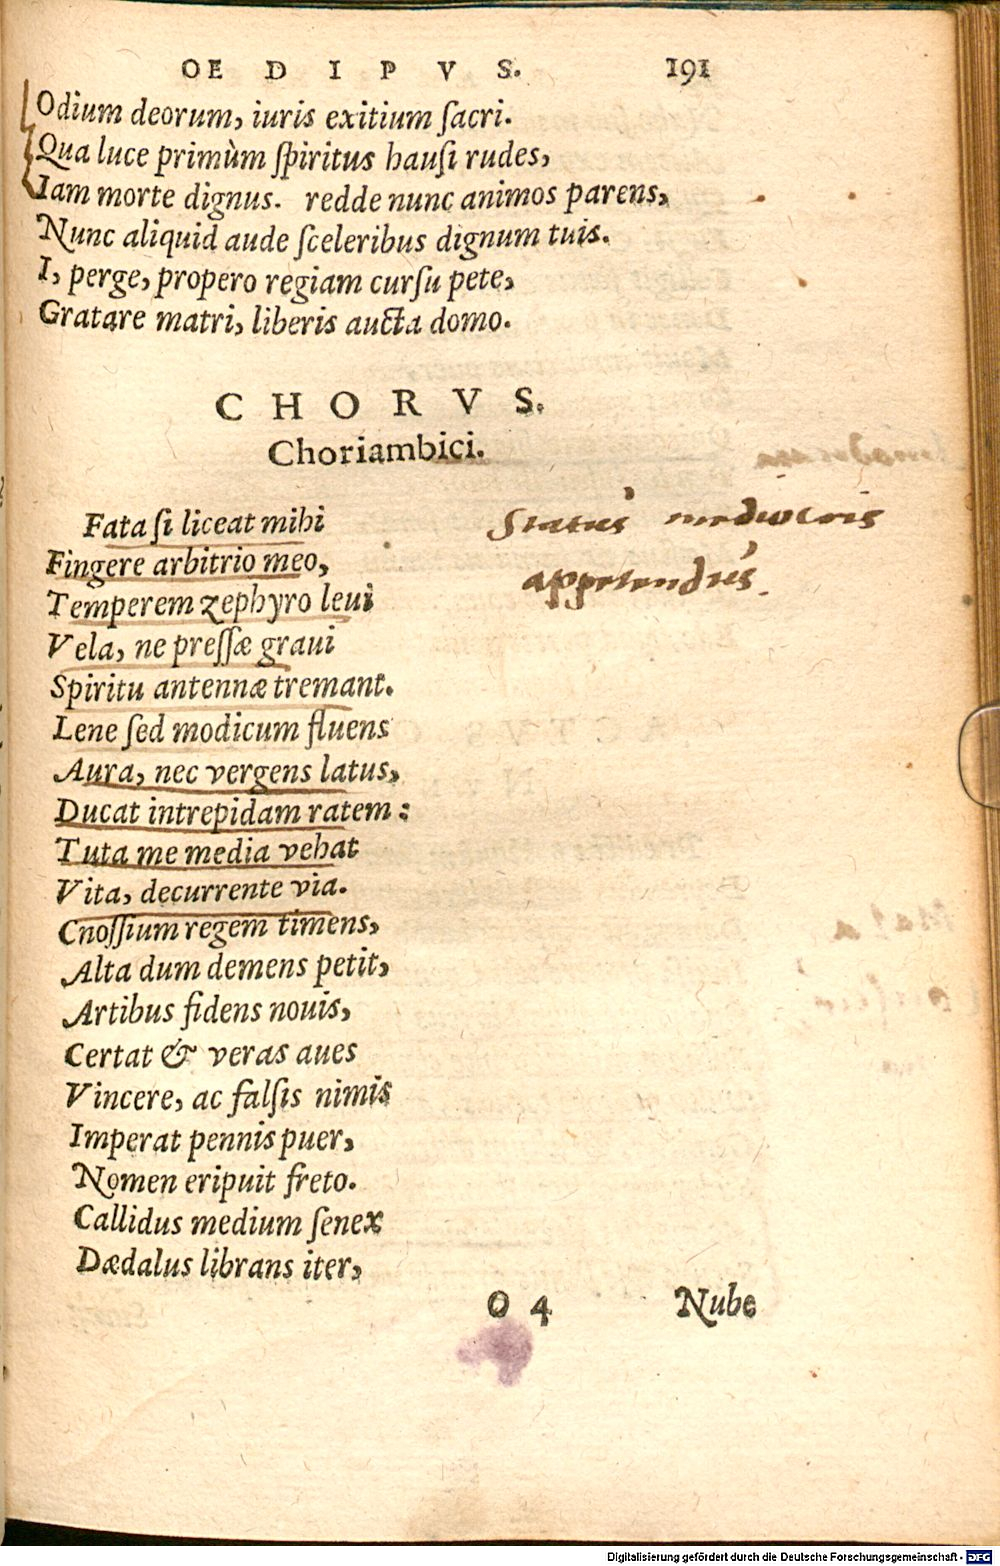 OEDIPVS. 191
Odium deorum, iuris exitium ſacri.
Qua luce primùm ſpiritus hauſi rudes,
Iam morte dignus. redde nunc animos parens,
Nunc aliquid aude ſceleribus dignum tuis.
I, perge, propero regiam curſu pete,
Gratare matri, liberis aucta domo.
CHORVS.
Choriambici.
Fata ſi liceat mihi
Fingere arbitrio meo,
Temperem zephyro leui
Vela, ne preſſæ graui
Spiritu antennæ tremant.
Lene ſed modicum fluens
Aura, nec vergens latus,
Ducat intrepidam ratem:
Tuta me media vehat
Vita, decurrente via.
Cnoſſium regem timens,
Alta dum demens petit,
Artibus fidens nouis,
Certat & veras aues
Vincere, ac falſis nimis
Imperat pennis puer,
Nomen eripuit freto.
Callidus medium ſenex
Dædalus librans iter,
Status mediocris
appetendus.
O 4 Nube
Digitalisierung gefördert durch die Deutsche Forschungsgemeinschaft - DFG